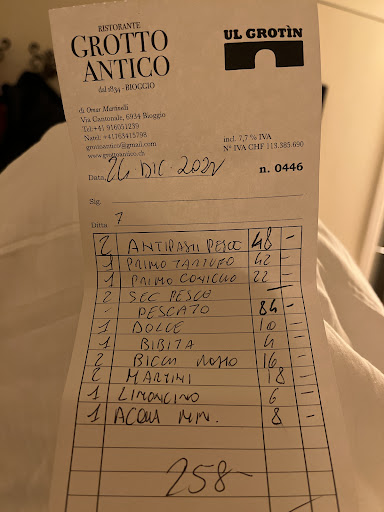 RISTORANTE
GROTTO
ANTICO
dal 1834 - BIOGGIO
UL GROTÌN
di Omar Martinelli
Via Cantonale, 6934 Bioggio
Tel:+41 916051239
Natel: +41763415798
grottoantico@gmail.com
www.grottoantico.ch
incl. 7,7 % IVA
N° IVA CHF 113.385.690
Data, 26 DIC. 2022
n. 0446
Sig.
Ditta 7
2 ANTIPASTI PESCE 48 -
1 PRIMO TARTUFO 42 -
1 PRIMO CONIGLIO 22 -
2 SEC PESCE
PESCATO 84 -
1 DOLCE 10 -
1 BIBITA 4 -
2 BICCH ROSSO 16 -
2 MARTINI 18 -
1 LIMONCINO 6 -
1 ACQUA MIN. 8 -
258 -